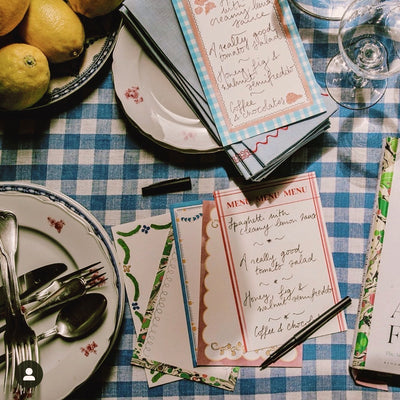 with
creamy lemon
sauce
A really good
tomato salad
Honey, fig &
walnut semifreddo
Coffee
& chocolates
MENU MENU MENU
Spaghetti with
creamy lemon sauce
A really good
tomato salad
Honey, fig &
walnut semifreddo
Coffee & chocolates
A
F